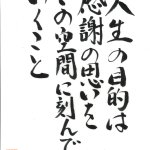 人生の目的は
感謝の思いを
この空間に刻んで
いくこと